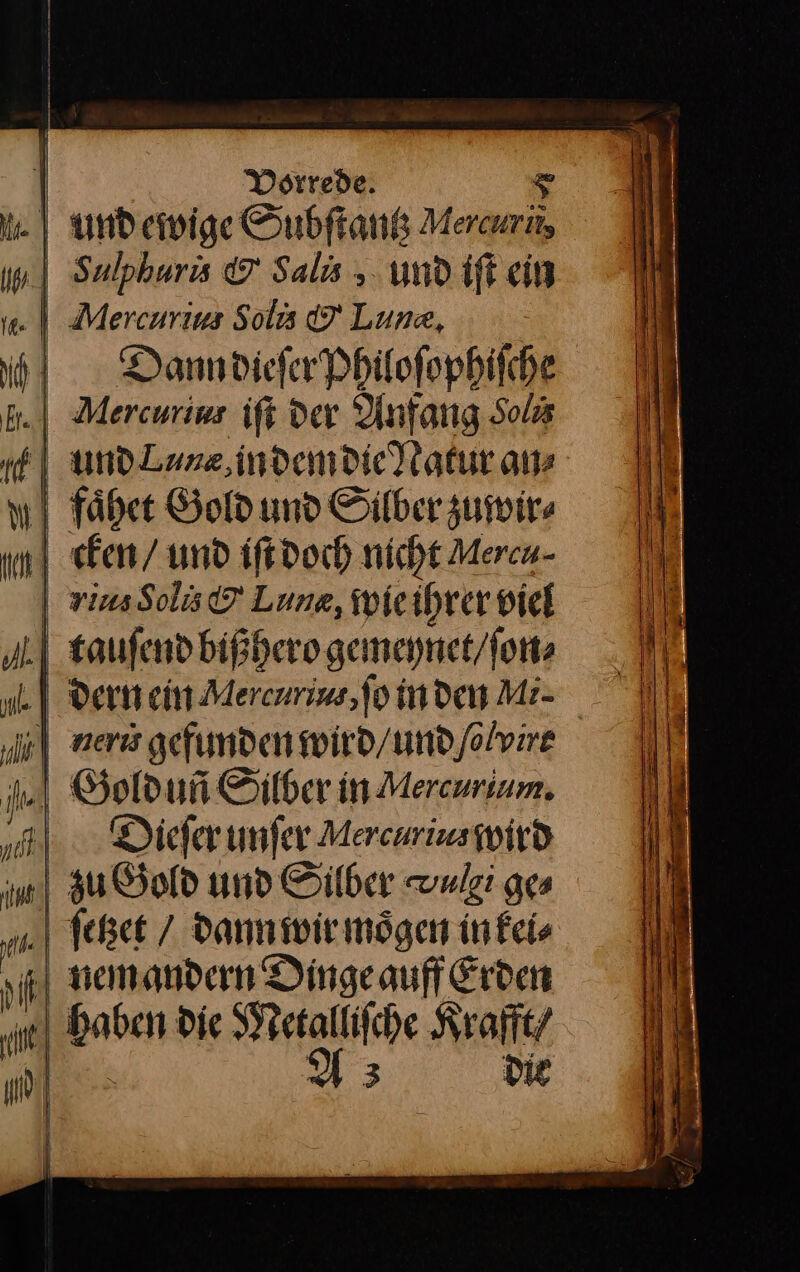 Vorrede. 5
und ewige Subſtantz Mercurii,
Sulphuris & Salis, und iſt ein
Mercurius Solis & Lunæ,
Dann dieſer Philoſophiſche
Mercurius iſt der Anfang Solis
und Lunæ, in dem die Natur an⸗
fåhet Gold und Silber zuwir⸗
cken / und iſt doch nicht Mercu-
rius Solis & Lunæ, wie ihrer viel
tauſend bißhero gemeynet / ſon⸗
dern ein Mercurius, ſo in den Mi-
neris gefunden wird / und ſolvire
Gold uñ Silber in Mercurium.
Dieſer unſer Mercurius wird
zu Gold und Silber vulgi ge⸗
ſetzet / dann wir mögen in kei⸗
nem andern Dinge auff Erden
haben die Metalliſche Krafft /
A 3 die